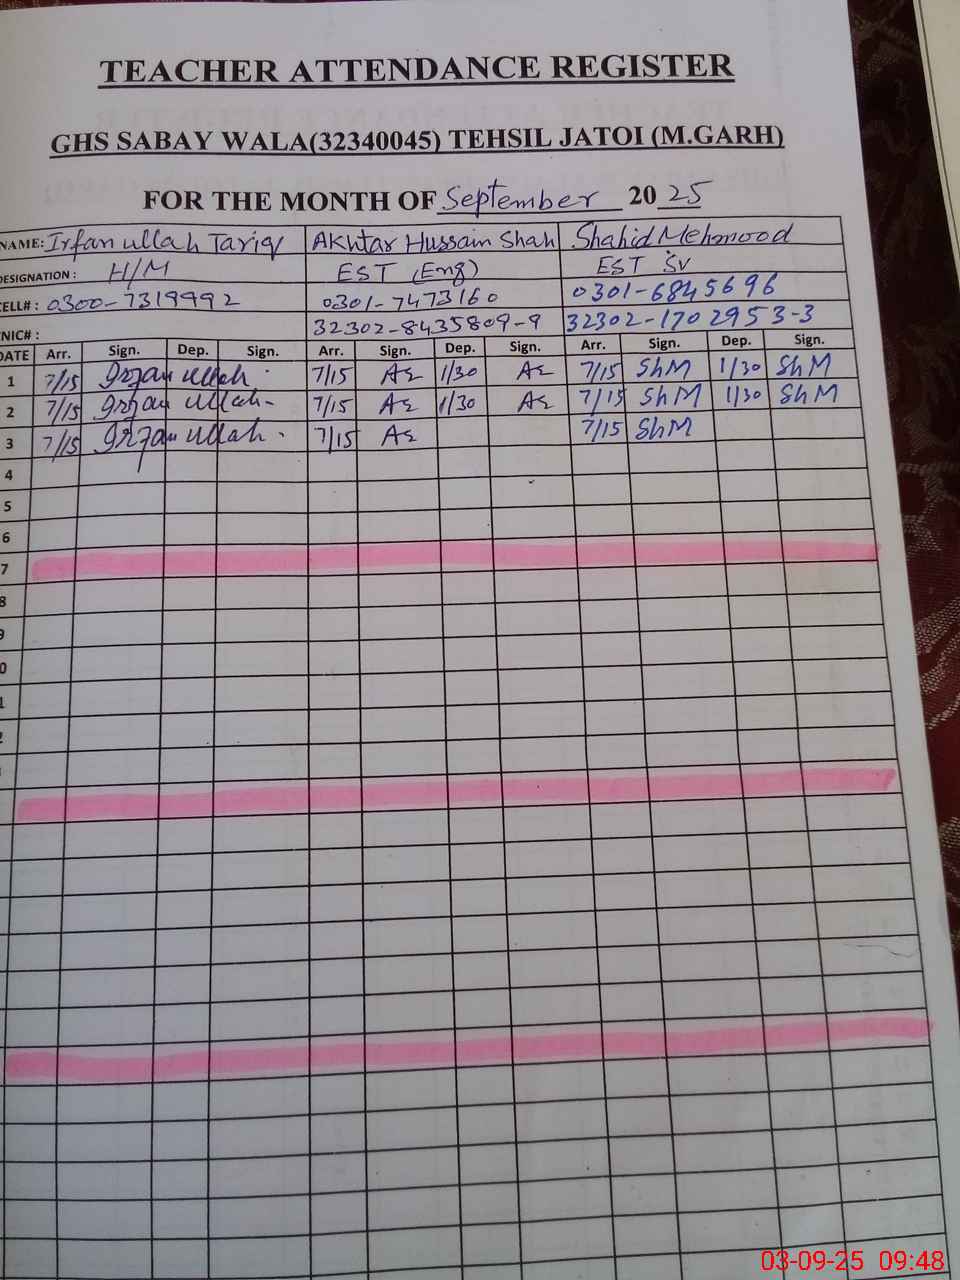 TEACHER ATTENDANCE REGISTER
GHS SABAY WALA(32340045) TEHSIL JATOI (M.GARH)
FOR THE MONTH OF September 2025
NAME: Irfan ullah Tariq Akhtar Hussain Shah Shahid Mehmood
DESIGNATION : H/M EST (Eng) EST SV
CELL# : 0300-7319992 0301-7473160 0301-6845696
CNIC# : 32302-8435809-9 32302-1702953-3
DATE Arr. Sign. Dep. Sign. Arr. Sign. Dep. Sign. Arr. Sign. Dep. Sign.
1 7/15 Irfan ullah. 7/15 1/30 7/15 ShM 1/30 ShM
2 7/15 Irfan ullah- 7/15 1/30 7/15 ShM 1/30 ShM
3 7/15 Irfan ullah. 7/15 7/15 ShM
4
5
6
7
8
9
0
1
2
03-09-25 09:48